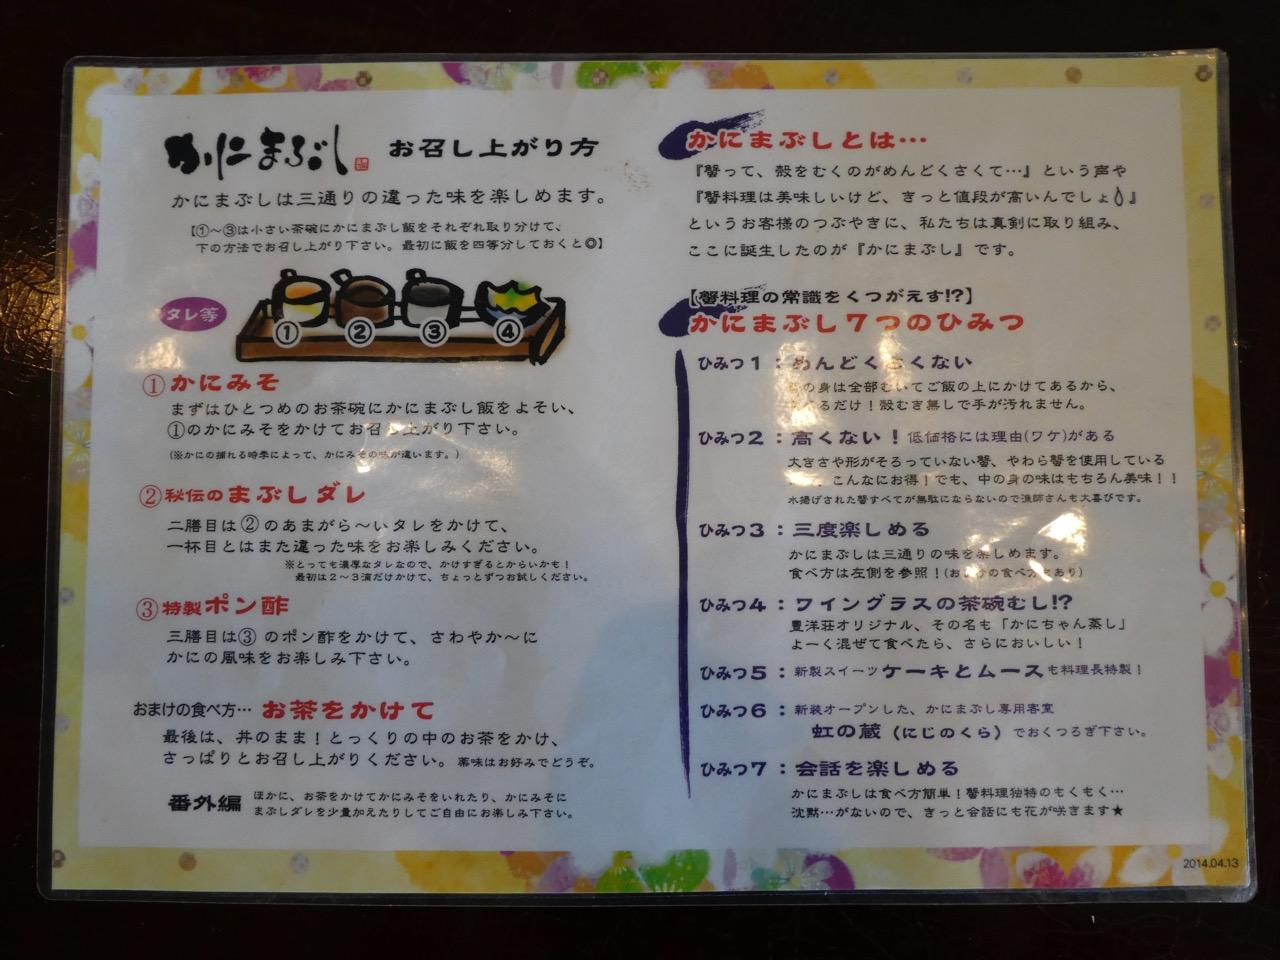 かにまぶし お召し上がり方
かにまぶしは三通りの違った味を楽しめます。
【①～③は小さい茶碗にかにまぶし飯をそれぞれ取り分けて、
下の方法でお召し上がり下さい。最初に飯を四等分しておくと◎】
タレ等
① ② ③ ④
①かにみそ
まずはひとつめのお茶碗にかにまぶし飯をよそい、
①のかにみそをかけてお召し上がり下さい。
(※かにの捕れる時季によって、かにみその味が違います。)
②秘伝のまぶしダレ
二膳目は②のあまがら～いタレをかけて、
一杯目とはまた違った味をお楽しみください。
※とっても濃厚なタレなので、かけすぎるとからいかも！
最初は2～3滴だけかけて、ちょっとずつお試しください。
③特製ポン酢
三膳目は③のポン酢をかけて、さわやか～に
かにの風味をお楽しみ下さい。
おまけの食べ方… お茶をかけて
最後は、丼のまま！とっくりの中のお茶をかけ、
さっぱりとお召し上がりください。薬味はお好みでどうぞ。
番外編 ほかに、お茶をかけてかにみそをいれたり、かにみそに
まぶしダレを少量加えたりしてご自由にお楽しみ下さい。
かにまぶしとは…
『蟹って、殻をむくのがめんどくさくて…』という声や
『蟹料理は美味しいけど、きっと値段が高いんでしょ』
というお客様のつぶやきに、私たちは真剣に取り組み、
ここに誕生したのが『かにまぶし』です。
【蟹料理の常識をくつがえす!?】
かにまぶし7つのひみつ
ひみつ1：めんどくさくない
の身は全部むいてご飯の上にかけてあるから、
るだけ！殻むき無しで手が汚れません。
ひみつ2：高くない！低価格には理由(ワケ)がある
大きさや形がそろっていない蟹、やわら蟹を使用している
、こんなにお得！でも、中の身の味はもちろん美味！！
水揚げされた蟹すべてが無駄にならないので漁師さんも大喜びです。
ひみつ3：三度楽しめる
かにまぶしは三通りの味を楽しめます。
食べ方は左側を参照！(おまけの食べ方もあり)
ひみつ4：ワイングラスの茶碗むし!?
豊洋荘オリジナル、その名も「かにちゃん蒸し」
よーく混ぜて食べたら、さらにおいしい！
ひみつ5：新製スイーツケーキとムースも料理長特製！
ひみつ6：新装オープンした、かにまぶし専用客室
虹の蔵（にじのくら）でおくつろぎ下さい。
ひみつ7：会話を楽しめる
かにまぶしは食べ方簡単！蟹料理独特のもくもく…
沈黙…がないので、きっと会話にも花が咲きます★
2014.04.13